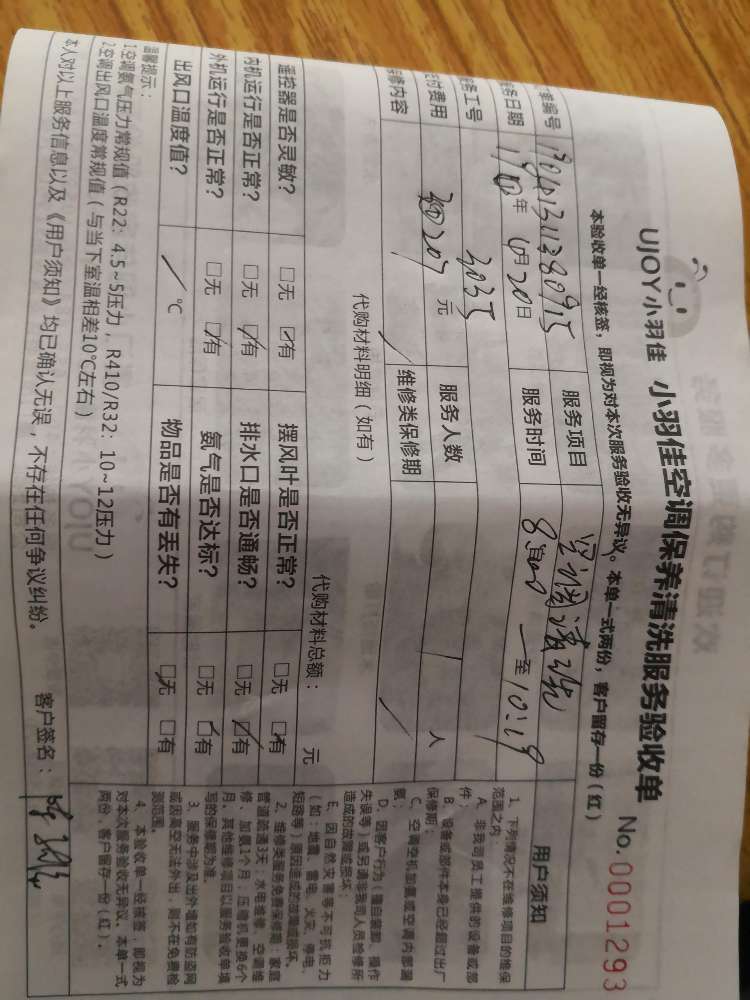 UJOY小羽佳 小羽佳空调保养清洗服务验收单 No.0001293
本验收单一经核签，即视为对本次服务验收无异议。本单一式两份，客户留存一份（红）
单编号 服务项目 空调清洗
务日期 年 6月20日 服务时间 至10:19
务工号 3035
付费用 元 服务人数 人
维修内容 维修类保修期
代购材料明细（如有）
代购材料总额： 元
遥控器是否灵敏？ □无 ☑有 摆风叶是否正常？ □无 ☑有
内机运行是否正常？ □无 ☑有 排水口是否通畅？ □无 ☑有
外机运行是否正常？ □无 ☑有 氨气是否达标？ □无 ☑有
出风口温度值？ / ℃ 物品是否有丢失？ ☑无 □有
温馨提示：
1空调氨气压力常规值（R22：4.5~5压力，R410/R32：10~12压力）
2空调出风口温度常规值（与当下室温相差10℃左右）
本人对以上服务信息以及《用户须知》均已确认无误，不存在任何争议纠纷。 客户签名：
用户须知
1、下列情况不在维修项目的维保
范围之内：
A、非我司员工提供的设备或部
件；
B、设备或部件本身已经超过出厂
保修期；
C、空调空机加氨或空调内部漏
氨；
D、因客户行为（擅自装卸、操作
失误等）或另请非我司人员检修所
造成的故障或损坏；
E、因自然灾害等不可抗拒力
（如：地震、雷电、火灾、停电、
短路等）原因造成的故障或损坏。
2、维修类服务免费保修期：家庭
管道疏通3天；水电维修、空调维
修、加氨1个月；压缩机更换6个
月；其他维修项目以服务验收单填
写的保修期为准。
3、服务中涉及出外墙如有防盗网
或因高空无法外出，则不在免费检
测范围。
4、本验收单一经核签，即视为
对本次服务验收无异议。本单一式
两份，客户留存一份（红）。